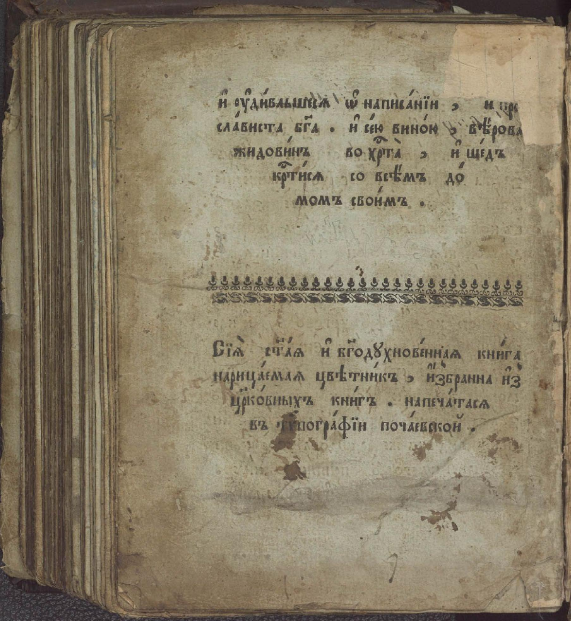 и҆ оу҆ди́вльшеся ѿ написа́нїи , и пре
сла́виста бг҃а . и҆ се́ю вино́ю , вѣ́рова
жидови́нъ во хрⷭ҇та̀ , и҆ ше́дъ
крⷭ҇ти́ся со всѣ́мъ до́
момъ свои́мъ .
Сїѧ̀ ст҃а́я и҆ бг҃одухнове́нная кни́га
нарица́емая цвѣ́тникъ , и҆збранна и҆з̾
цр҃ко́вныхъ кни́гъ . напеча́тася
въ тѷпогра́фїи поча́евской .